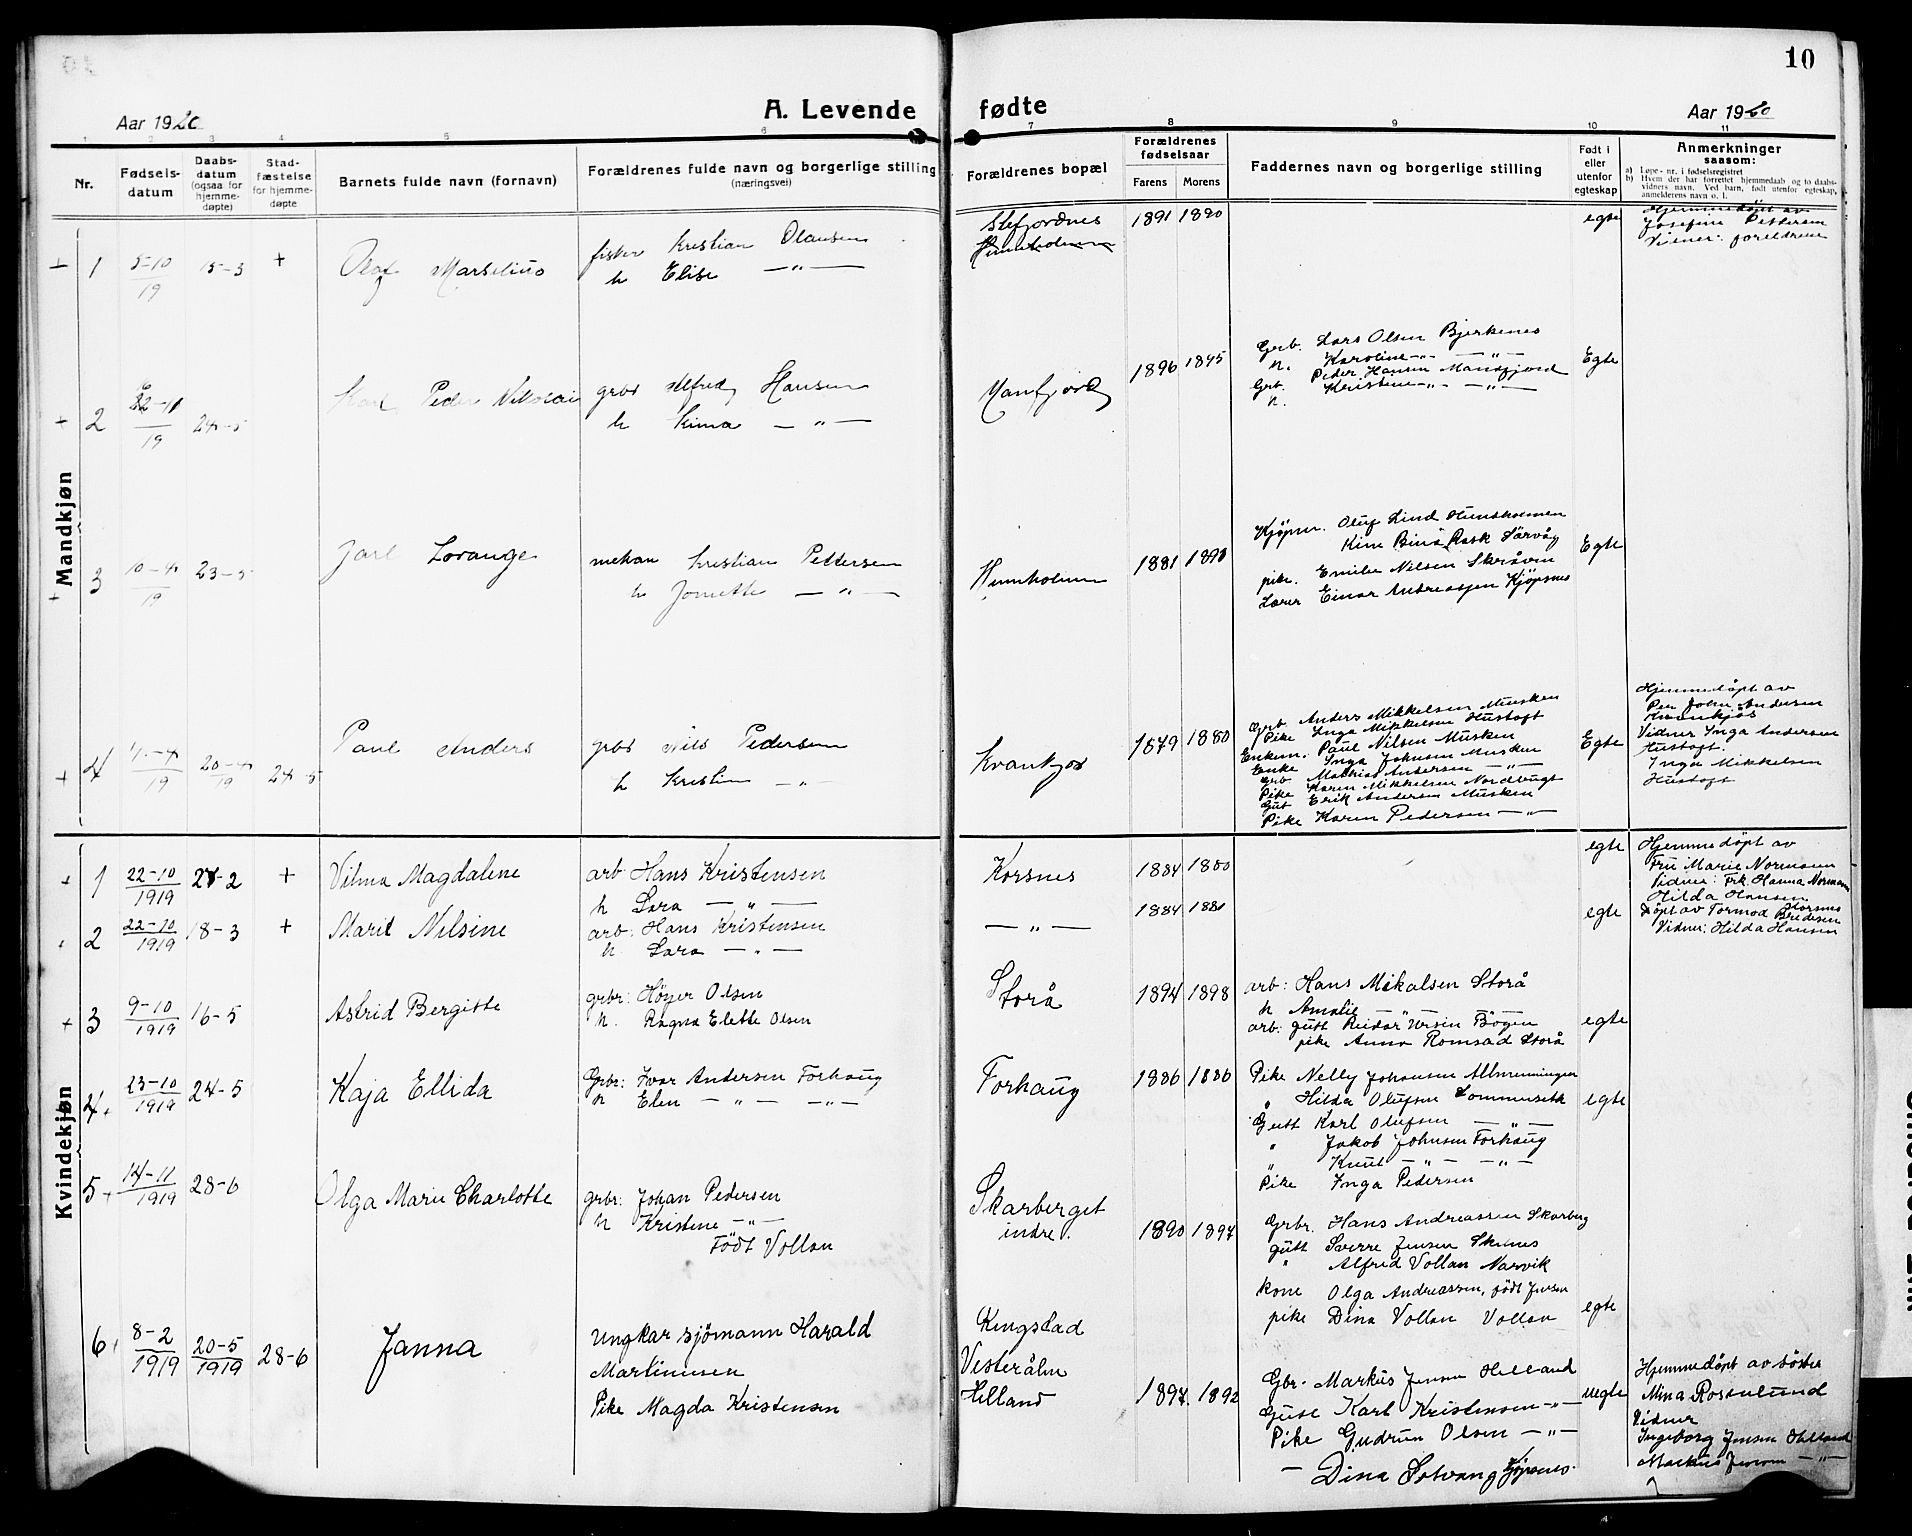 10
A. Levende fødte
Aar 1920
Aar 1920
1 2 3 4 5 6 7 8 9 10 11
Nr.
Fødselsdatum
Daabsdatum (ogsaa for hjemmedøpte)
Stadfæstelse for hjemmedøpte
Barnets fulde navn (fornavn)
Forældrenes fulde navn og borgerlige stilling (næringsvei)
Forældrenes bopæl
Forældrenes fødselsaar
Farens Morens
Faddernes navn og borgerlige stilling
Født i eller utenfor egteskap
Anmerkninger saasom:
a) Løpe-nr. i fødselsregistret
b) Hvem der har forrettet hjemmedaab og to daabsvidners navn. Ved barn, født utenfor egteskap, anmelderens navn o. l.
Mandkjøn
+ 1 5-10 19 15-3 + Olaf Marselius
fisker Kristian Olausen
h Elise — " —
Stefjordnes
1891 1890
egte
Hjemmedöpt av
Josefine Pettersen
Vidner: foreldrene
+ 2 22-11 19 24-5 Karl Peder Nikolai
grbr Alfred Hansen
h Kima — " —
Manfjord
1896 1895
Grb. Lars Olsen Bjerkenes
h. Karoline —"— —"—
Grb. Peder Hansen Mandfjord
h. Kristene —"— —"—
Egte
+ 3 10-4 19 23-5 Jarl Lorange
mekan Kristian Pettersen
h Jonette — " —
Hunholmen
1881 1890
Kjøpm. Oluf Lind Hunsholmen
Kine Bina Rask Sørvåg
pike. Emilie Nilsen Skråven
Lærer Einar Andreassen Kjöpsnes
Egte
+ 4 11-4 19 20-4 19 24-5 Paul Anders
grbr Nils Pedersen
h Kristin — " —
Kvankjos
1879 1880
Grb Anders Mikkelsen Musken
Pike Inga Mikkelsen Hustoft
Enkem. Paul Nilsen Musken
Enke Inga Johnsen Musken
Grb Mathias Andersen — " —
Pike Karen Mikkelsen Nordbugt
Gut Erik Andersen Musken
Pike Karen Pedersen — " —
Egte
Hjemmedöpt av
Per John Andersen
Kvankjøs
Vidner Inga Andersen
Hustoft.
Inga Mikkelsen
Hustoft
Kvindekjøn
+ 1 22-10 1919 24-2 + Vilma Magdalene
arb: Hans Kristensen
h Sara — " —
Korsnes
1884 1880
egte
Hjemmedöpt av
Fru Marie Normann
Vidner: Frk. Hanna Normann
Hilda Hansen
Korsnes
2 22-10 1919 18-3 + Marit Nilsine
arb: Hans Kristensen
h Sara — " —
— " —
1884 1881
egte
Döpt av Tormod Bredesen
Vidner: Hilda Hansen
+ 3 9-10 1919 16-5 Astrid Bergitte
grbr: Höyer Olsen
h. Ragna Elette Olsen
Storå
1894 1898
arb: Hans Mikalsen Storå
h Amalie — " —
arb. gutt Reidar Ursin Bögen
pike Anna Romsad Storå
egte
4+ 23-10 1919 24-5 Kaja Ellida
Grbr: Ivar Andersen Forhaug
h Elen — " — — " —
Forhaug
1886 1886
Pike Nelly Johansen Allmenningen
" Hilda Olufsen Sommerseth
Gutt Karl Olufsen — " —
" Jakob Johnsen Forhaug
" Knut — " — — " —
Pike Inga Pedersen
egte
5+ 14-11 1919 28-6 Olga Marie Charlotte
grbr: Johan Pedersen
h Kristene — " —
Födt Vollan
Skarberget
indre.
1890 1897
Grbr. Hans Andreassen Skarberg
gutt Sverre Jensen Skenes
" Alfred Vollan Narvik
kone Olga Andreassen, født Jensen
pike Dina Vollan Vollan
egte
6 8-2 1919 20-5 1919 28-6 Janna
Ungkar sjömann Harald
Martinusen
Pike Magda Kristensen
Ringstad
Vesterålen
Helland
1897 1892
Gbr. Markus Jensen Helland
Gutt Karl Kristensen — " —
Pike Gudrun Olsen — " —
— Dina Solvang Kjöpsnes
uegte
Hjemmedöpt av söster
Mina Rosenlund
Vidner
Ingeborg Jensen Helland
Markus Jensen — " —